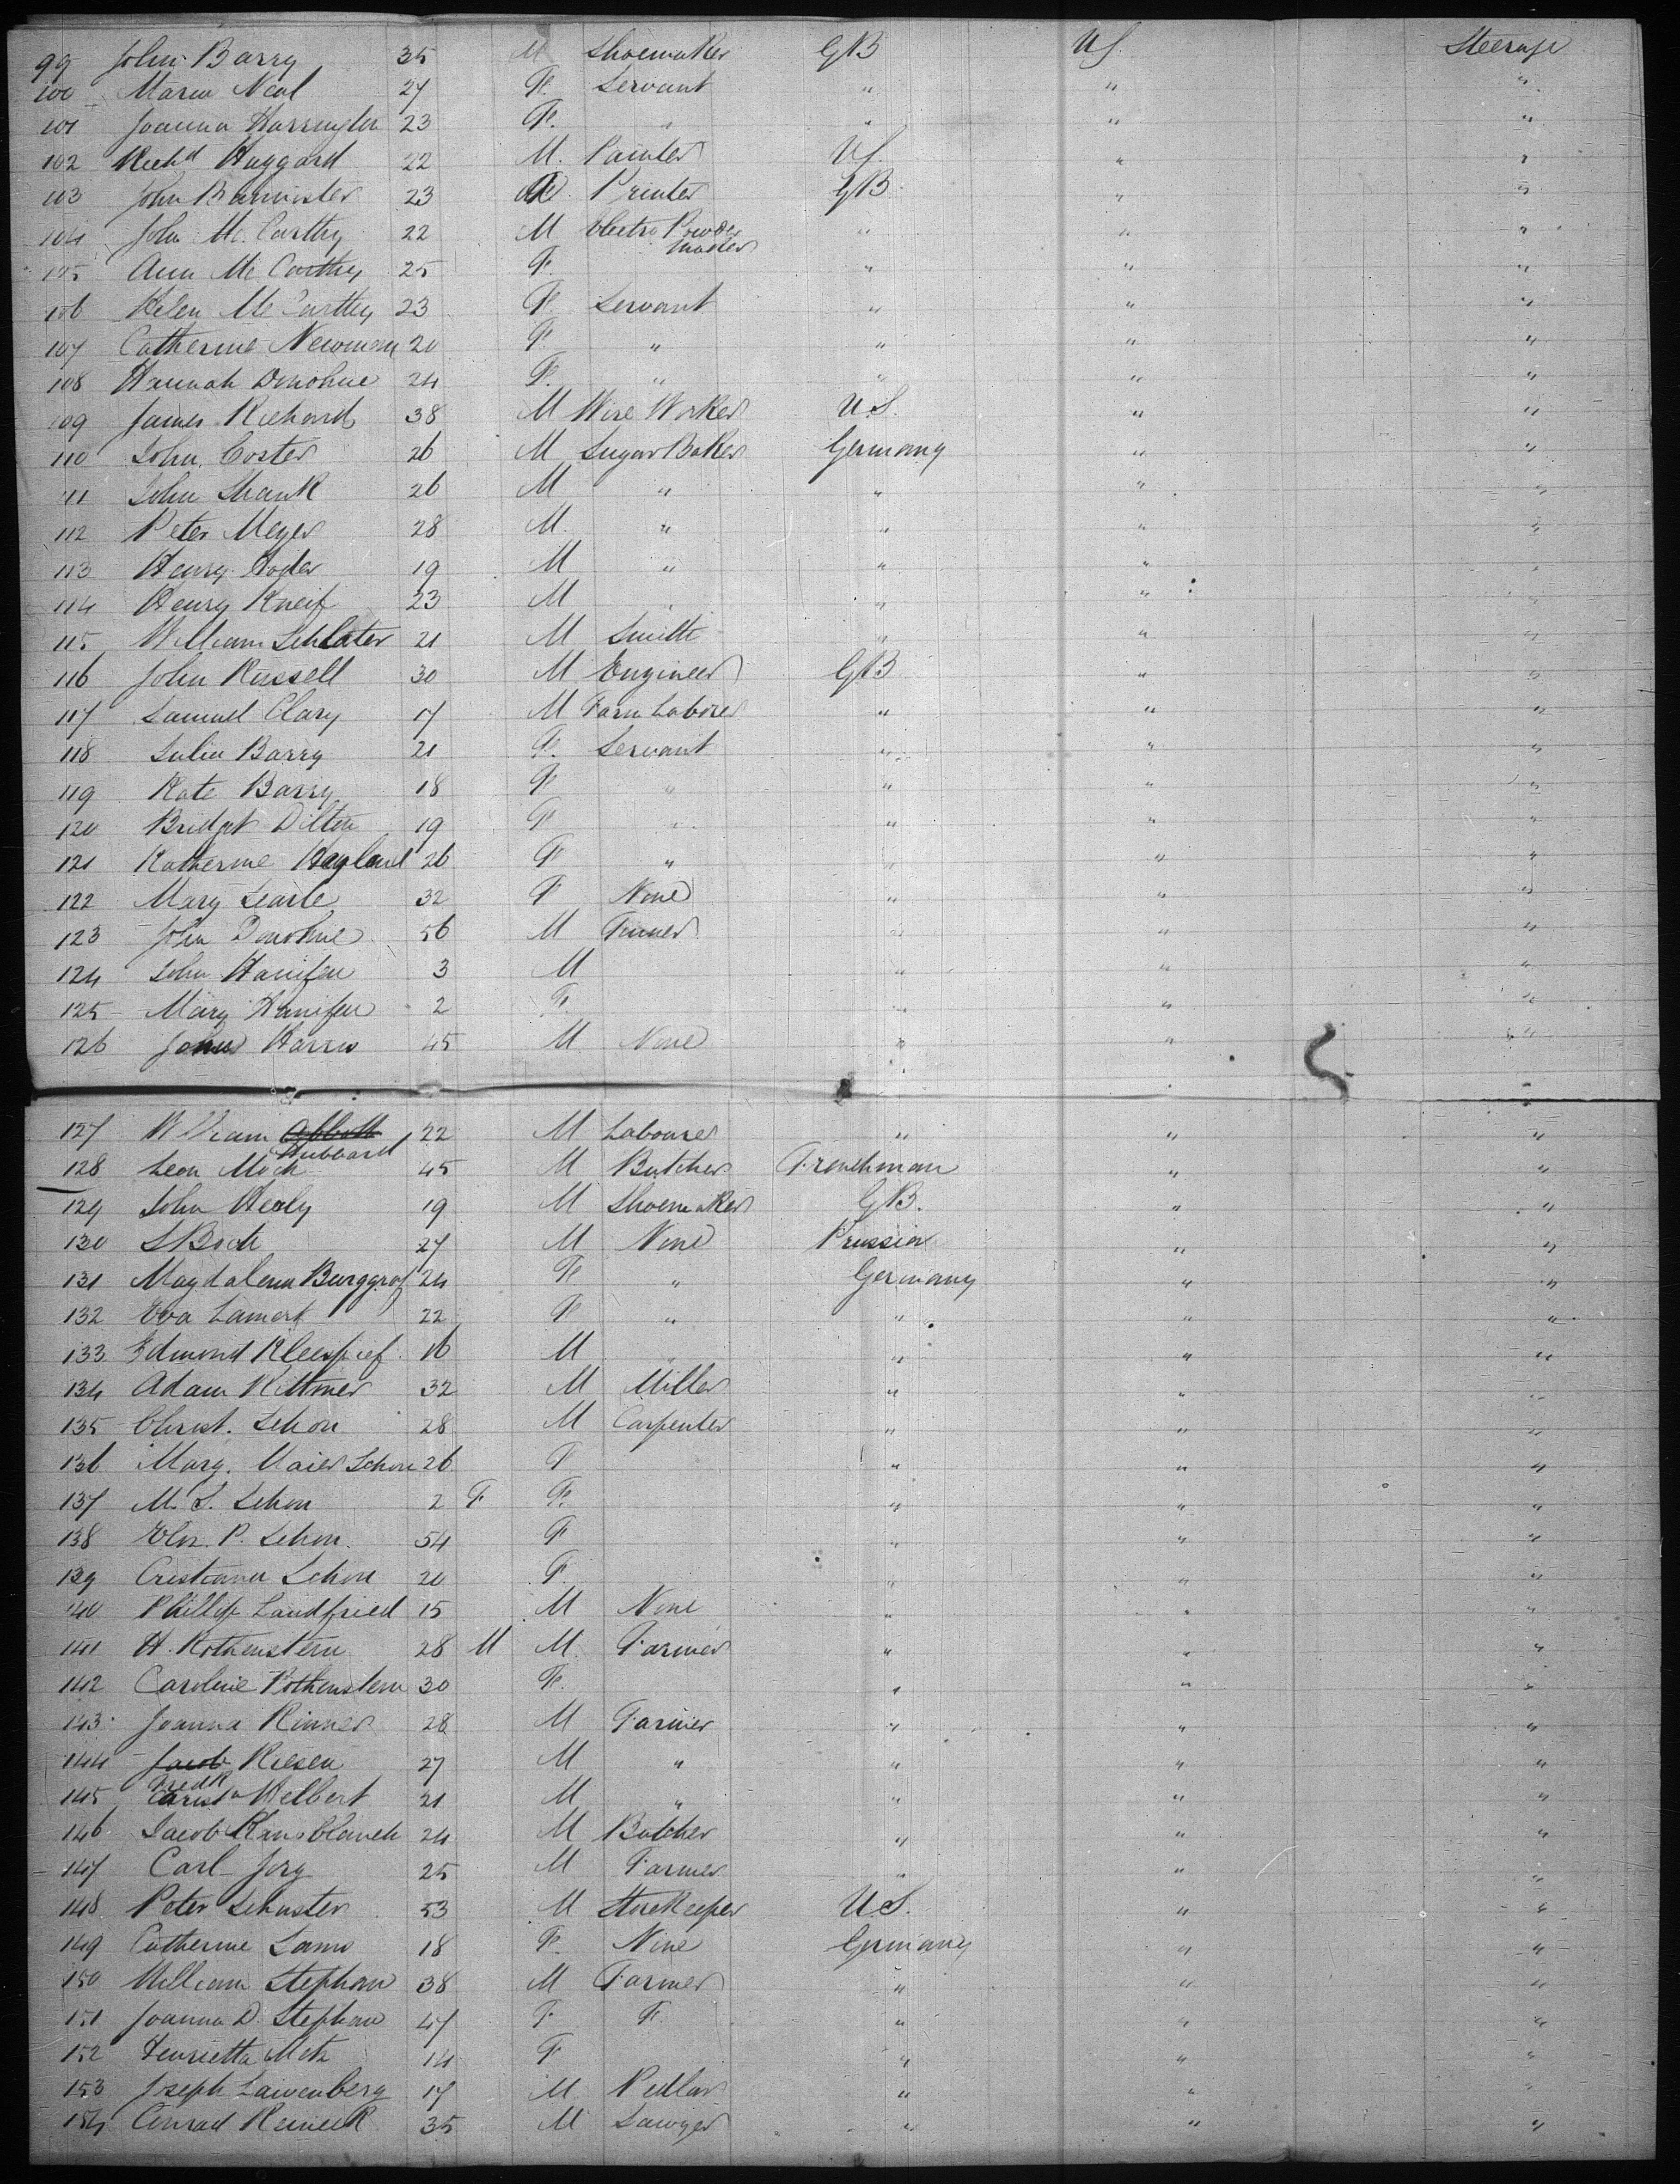 99 John Barry 35 M Shoemaker GB US. Steerage
100 Maria Neal 27 F. Servant " " "
101 Joanna Harrington 23 F. " " " "
102 Richd Haggard 22 M. Painter US. " "
103 John Bannister 23 Printer GB. " "
104 John Mc. Carthy 22 M Electro Powder " " "
maker
105 Ann Mc Carthy 25 F. " " "
106 Helen Mc Carthy 23 F. Servant " " "
107 Catherine Newman 20 F. " " " "
108 Hannah Donohue 24 F. " " " "
109 James Richards 38 M Wire Worker U.S. " "
110 John Coster 26 M Sugar Baker Germany " "
111 John Shank 26 M " " " "
112 Peter Meyer 28 M. " " " "
113 Henry 19 M " " " "
114 Henry Kneif 23 M " " " "
115 William Schlater 21 M Smith " " "
116 John Russell 30 M Engineer GB " "
117 Samuel Clary 17 M Farm Laborer " " "
118 Julia Barry 21 F. Servant " " "
119 Kate Barry 18 F " " " "
120 Bridget Dillon 19 F " " " "
121 Katherine 26 F " " " "
122 Mary Searle 32 F None " " "
123 John Donohue 56 M " " "
124 John Hanifen 3 M " " "
125 Mary Hanifen 2 F. " " "
126 Harris 45 M None " " "
127 William Abbott 22 M Labourer " " "
Hubbard
128 Leon Moch 45 M Butcher Frenchman " "
129 John Healy 19 M Shoemaker GB. " "
130 S Bock 27 M None Prussia " "
131 Magdalena Burggraf 24 F " Germany " "
132 Eva Lamert 22 F " " " "
133 Edmond Kleespief 16 M " " " "
134 Adam Rittmer 32 M Miller " " "
135 Christ. Schon 28 M Carpenter " " "
136 Marg. Maier Schon 26 F " " "
137 M. S. Schon 2 F F. " " "
138 P. Schon. 54 F " " "
139 Cristiana Schon 20 F. " " "
140 Phillip Landfried 15 M None " " "
141 H. Rothenstern 28 M M. Farmer " " "
142 Caroline Rothenstern 30 F. " " "
143 Joanna Rinner 28 M Farmer " " "
144 Jacob Riesen 27 M " " " "
Fredk
145 Christn Welbert 21 M " " " "
146 Jacob 24 M Butcher " " "
147 Carl Jorg 25 M Farmer " " "
148 Peter Schuster 53 M Storekeeper U.S. " "
149 Catherine 18 F. None Germany " "
150 William Stephan 38 M Farmer " " "
151 Joanna D. Stephan 47 F. F. " " "
152 Henrietta Metz 14 F " " "
153 Joseph Laivenberg 17 M. Pedlar " " "
154 Conrad Reineck 35 M Sawyer " " "